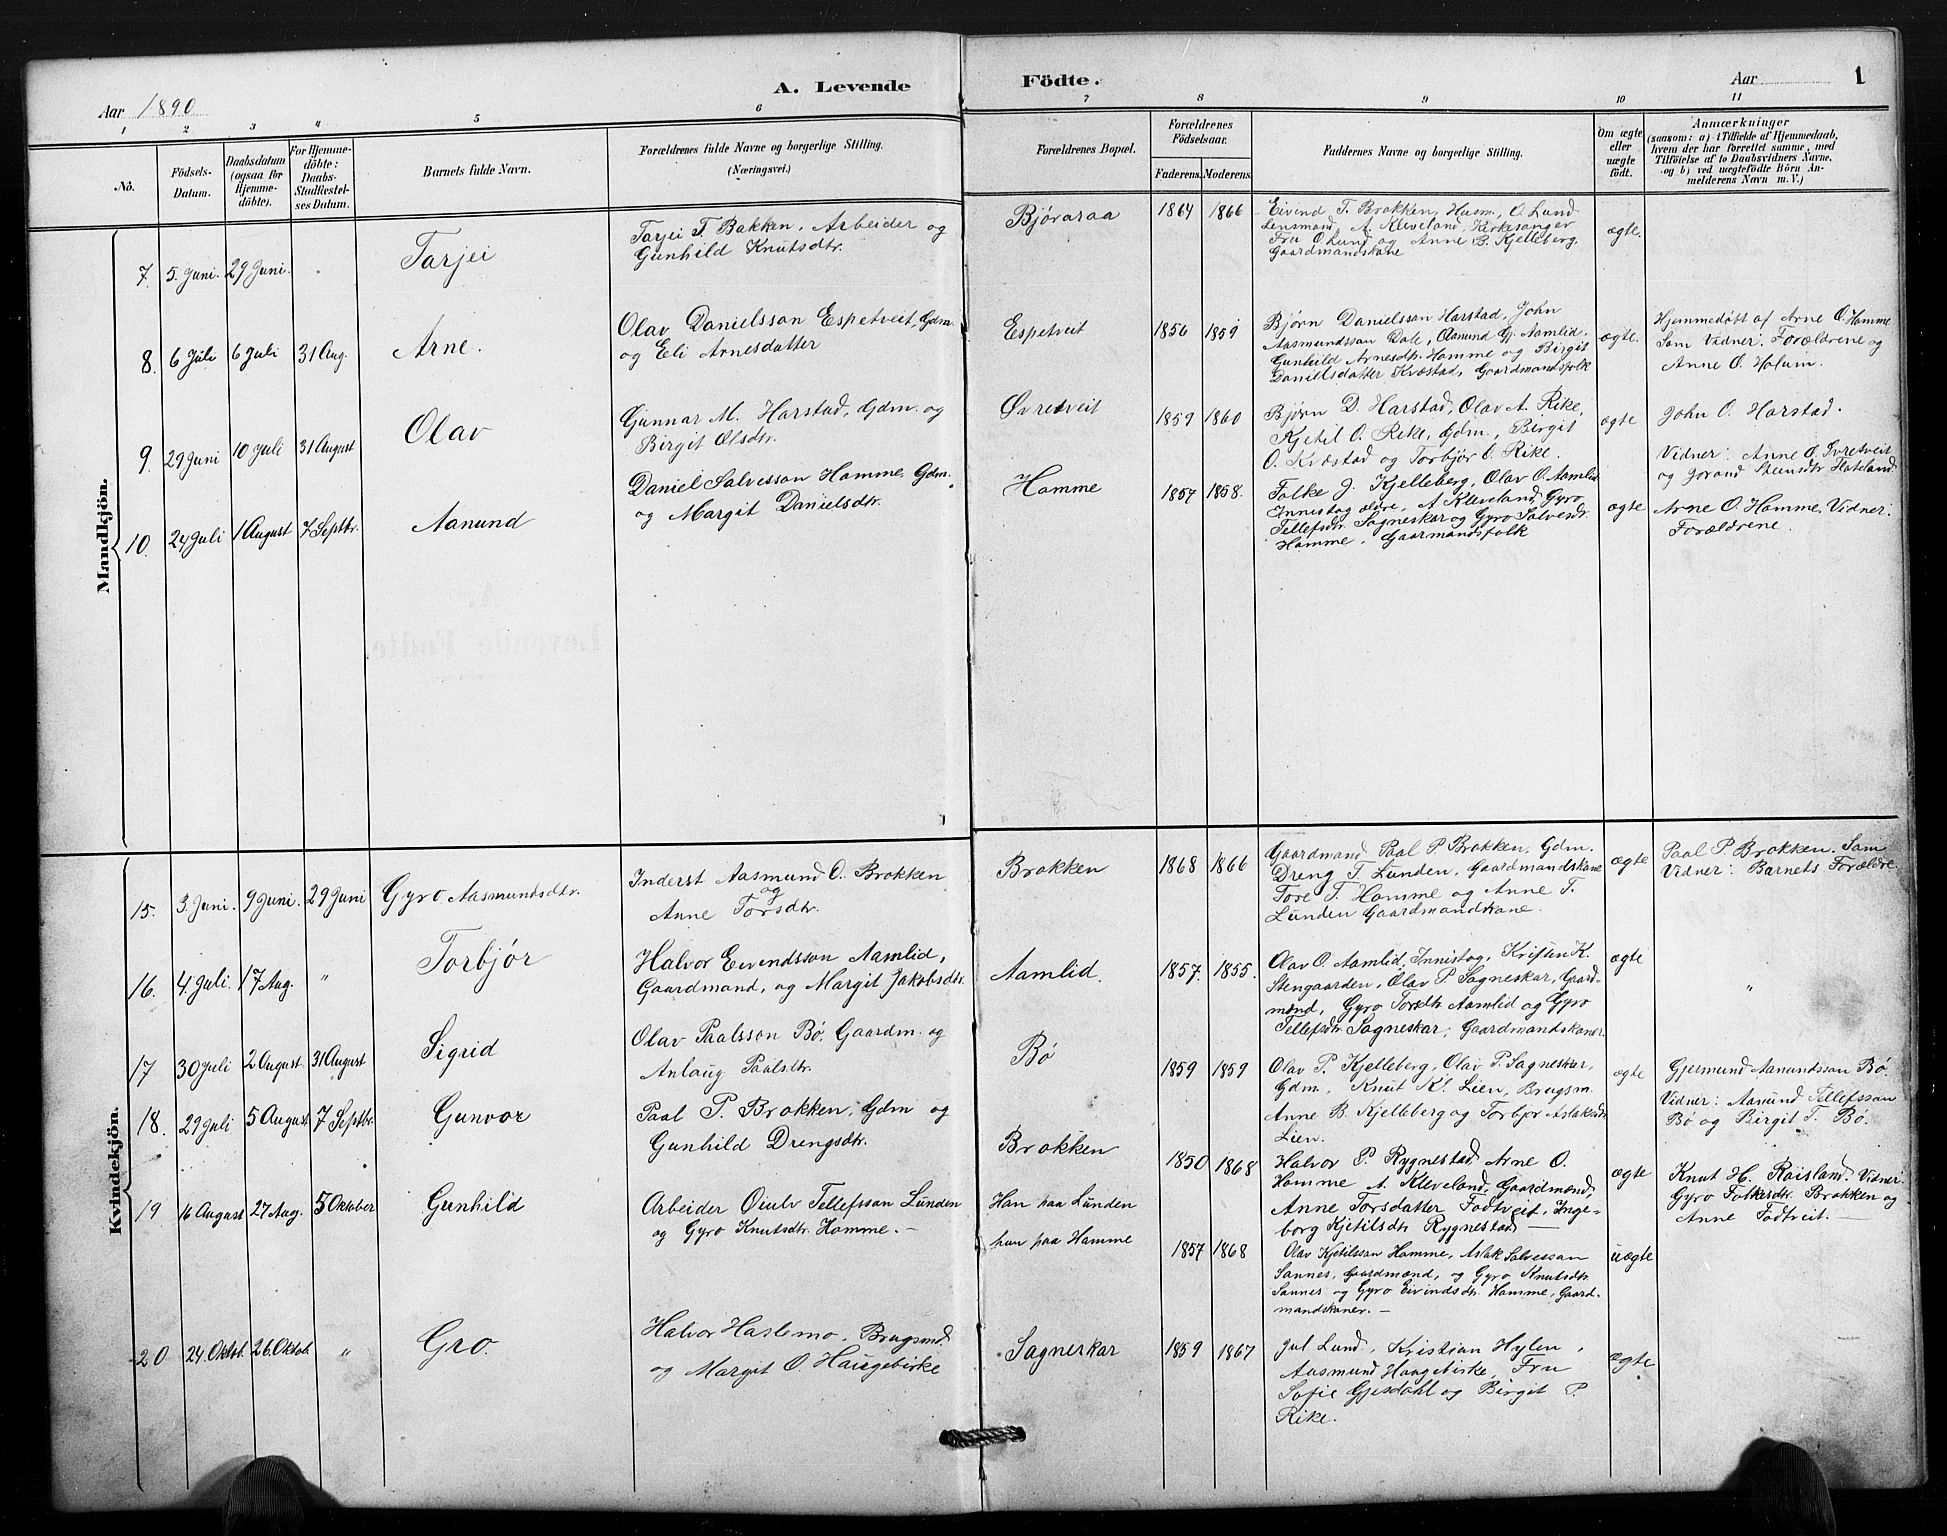 Aar 1890
A. Levende
Födte.
Aar
1
1
2
3
4
5
6
7
8
9
10
11
No.
Födsels-
Datum.
Daabsdatum
(ogsaa for
Hjemme-
döbte).
For Hjemme-
döbte:
Daabs-
Stadfæstel-
ses Datum.
Barnets fulde Navn.
Forældrenes fulde Navne og borgerlige Stilling.
(Næringsvei.)
Forældrenes Bopæl.
Forældrenes
Födselsaar.
Faderens.
Moderens.
Faddernes Navne og borgerlige Stilling.
Om ægte
eller
uægte
födt.
Anmærkninger
(saasom: a) i Tilfælde af Hjemmedaab,
hvem der har forrettet samme, med
Tilföielse af to Daabsvidners Navne,
og b) ved uægtefödte Börn An-
melderens Navn m. V.)
Mandkjön.
7. 5. Juni. 29 Juni. "
Tarjei
Tarjei T. Bakken, Arbeider og
Gunhild Knutsdtr.
Björaraa
1864 1866
Eivind T. Brokken, Husm., O. Lund
Lensmand, A. Kleveland, Kirkesanger
Fru O Lund og Anne B. Kjelleberg.
Gaardmandskone
ægte.
8. 6 Juli 6 Juli 31 Aug.
Arne.
Olav Danielsson Espetveit, Gdm.
og Eli Arnesdatter
Espetveit
1856 1859
Bjørn Danielsson Harstad, John
Aasmundsson Dale, Olamund Gj. Aamlid,
Gunhild Arnesdtr. Homme og Birgit
Danielsdatter Kvæstad, Gaardmandsfolk
ægte.
Hjemmedøbt af Arne O. Homme
Som Vidner: Forældrene og
Anne O. Holum.
9. 29 Juni 10 Juli 31 August
Olav
Gunnar M. Harstad, Gdm. og
Birgit Olsdtr.
Øvretveit
1859 1860
Bjørn D. Harstad, Olav A. Rike,
Kjetil O. Rike, Gdm., Birgit
O. Kvæstad og Torbjør O. Rike.
ægte
John O. Harstad.
Vidner: Anne O. Øvretveit
og Jorand Steinsdtr Flateland
10. 24 Juli 1 August 7 Septbr.
Aanund
Daniel Salvesson Homme, Gdm.
og Margit Danielsdtr.
Homme
1857 1858.
Folke J. Kjelleberg, Olav O. Aamlid
Innistog ældre, A Kleveland, Gyro
Tellefsdtr. Sagneskar og Gyro Salvesdtr
Homme, Gaarmandsfolk
ægte
Arne O. Homme, Vidner:
Forældrene.
Kvindekjön.
15. 3 Juni. 9 Juni. 29 Juni
Gyro Aasmundsdtr.
Inderst Aasmund O. Brokken
og
Anne Torsdtr.
Brokken
1868 1866
Gaardmand Paal P. Brokken, Gdm.
Dreng T. Lunden, Gaardmandskone
Tore T. Homme og Anne T.
Lunden Gaardmandkone.
ægte
Paal P. Brokken. Som
Vidner: Barnets Forældre
16. 4 Juli. 17 Aug. "
Torbjør
Halvor Eivindsson Aamlid,
Gaardmand, og Margit Jakobsdtr.
Aamlid.
1857. 1855.
Olav O. Aamlid, Innistog, Kristen K.
Stengaarden, Olav P. Sagneskar, Gaard-
mænd, Gyro Tordtr Aamlid og Gyro
Tellefsdtr Sagneskar, Gaardmandskoner.
ægte
"
17 30 Juli 2 August 31 August
Sigrid
Olav Paalsson Bø, Gaardm. og
Anlaug Paalsdtr.
Bø
1859 1859
Olav P. Kjelleberg, Olav P. Sagneskar,
Gdm., Knut K. Lien, Brugsm.
Anne B. Kjelleberg og Torbjør Aslaksdtr
Lien.
ægte
Gjermund Aamundsson Bø.
Vidner: Aamund Tellefsson
Bø og Birgit T. Bø.
18. 29 Juli 5 August 7 Septbr.
Gunvor
Paal P. Brokken, Gdm og
Gunhild Drengsdtr.
Brokken
1850 1868
Halvor P. Rygnestad, Arne O.
Homme A. Kleveland, Gaardmænd,
Anne Torsdatter Fodtveit, Inge-
borg Kjetilsdtr Rygnestad
ægte
Knut H. Raisland. Vidner
Gyro Folkesdtr. Brokken og
Anne Fodtveit.
19. 16 August 27 Aug. 5 Oktober
Gunhild
Arbeider Øiulv Tellefsson Lunden
og Gyro Knutsdtr. Homme. -
Han paa Lunden
hun paa Homme
1857 1868
Olav Kjetilsson Homme, Aslak Salvesson
Sannes, Gaardmænd, og Gyro Knutsdtr.
Sannes og Gyro Eivindsdtr. Homme, Gaard-
mandskoner. -
uægte
20 24. Oktob. 26. Oktob. "
Gro.
Halvor Haslemo, Brugsmd.
og Margit O. Haugebirke
Sagneskar
1859 1867
Jul Lund, Kristian Hylen,
Aasmund Haugebirke, Fru
Sofie Gjesdahl og Birgit P.
Rike.
ægte